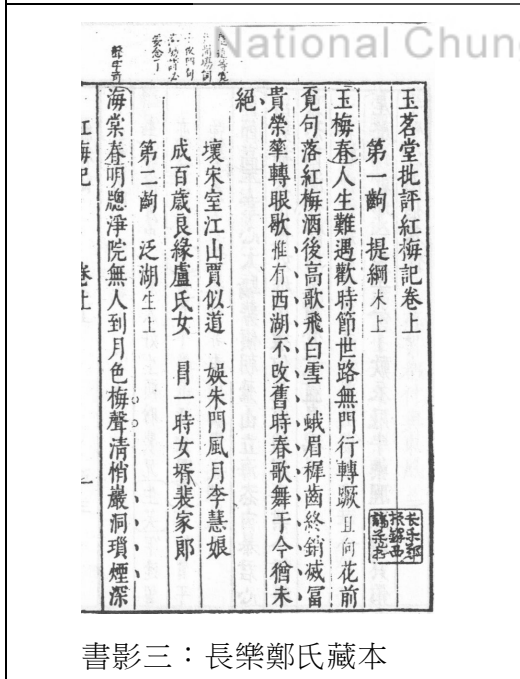 National Chung
玉茗堂批評紅梅記卷上
第一齣 提綱末上
玉梅春人生難遇歡時節世路無門行轉蹶且向花前
覓句落紅梅酒後高歌飛白雪 蛾眉穉齒終銷滅冨
貴榮華轉眼歇惟有西湖不改舊時春歌舞于今猶未
絕
壞宋室江山賈似道 娛朱門風月李慧娘
成百歲良緣盧氏女 冐一時女壻裴家郎
第二齣 泛湖生上
海棠春明牎淨院無人到月色梅聲清悄巖洞瑣煙深
紅梅記 卷上 一
長樂鄭
振鐸西
諦藏書
書影三：長樂鄭氏藏本